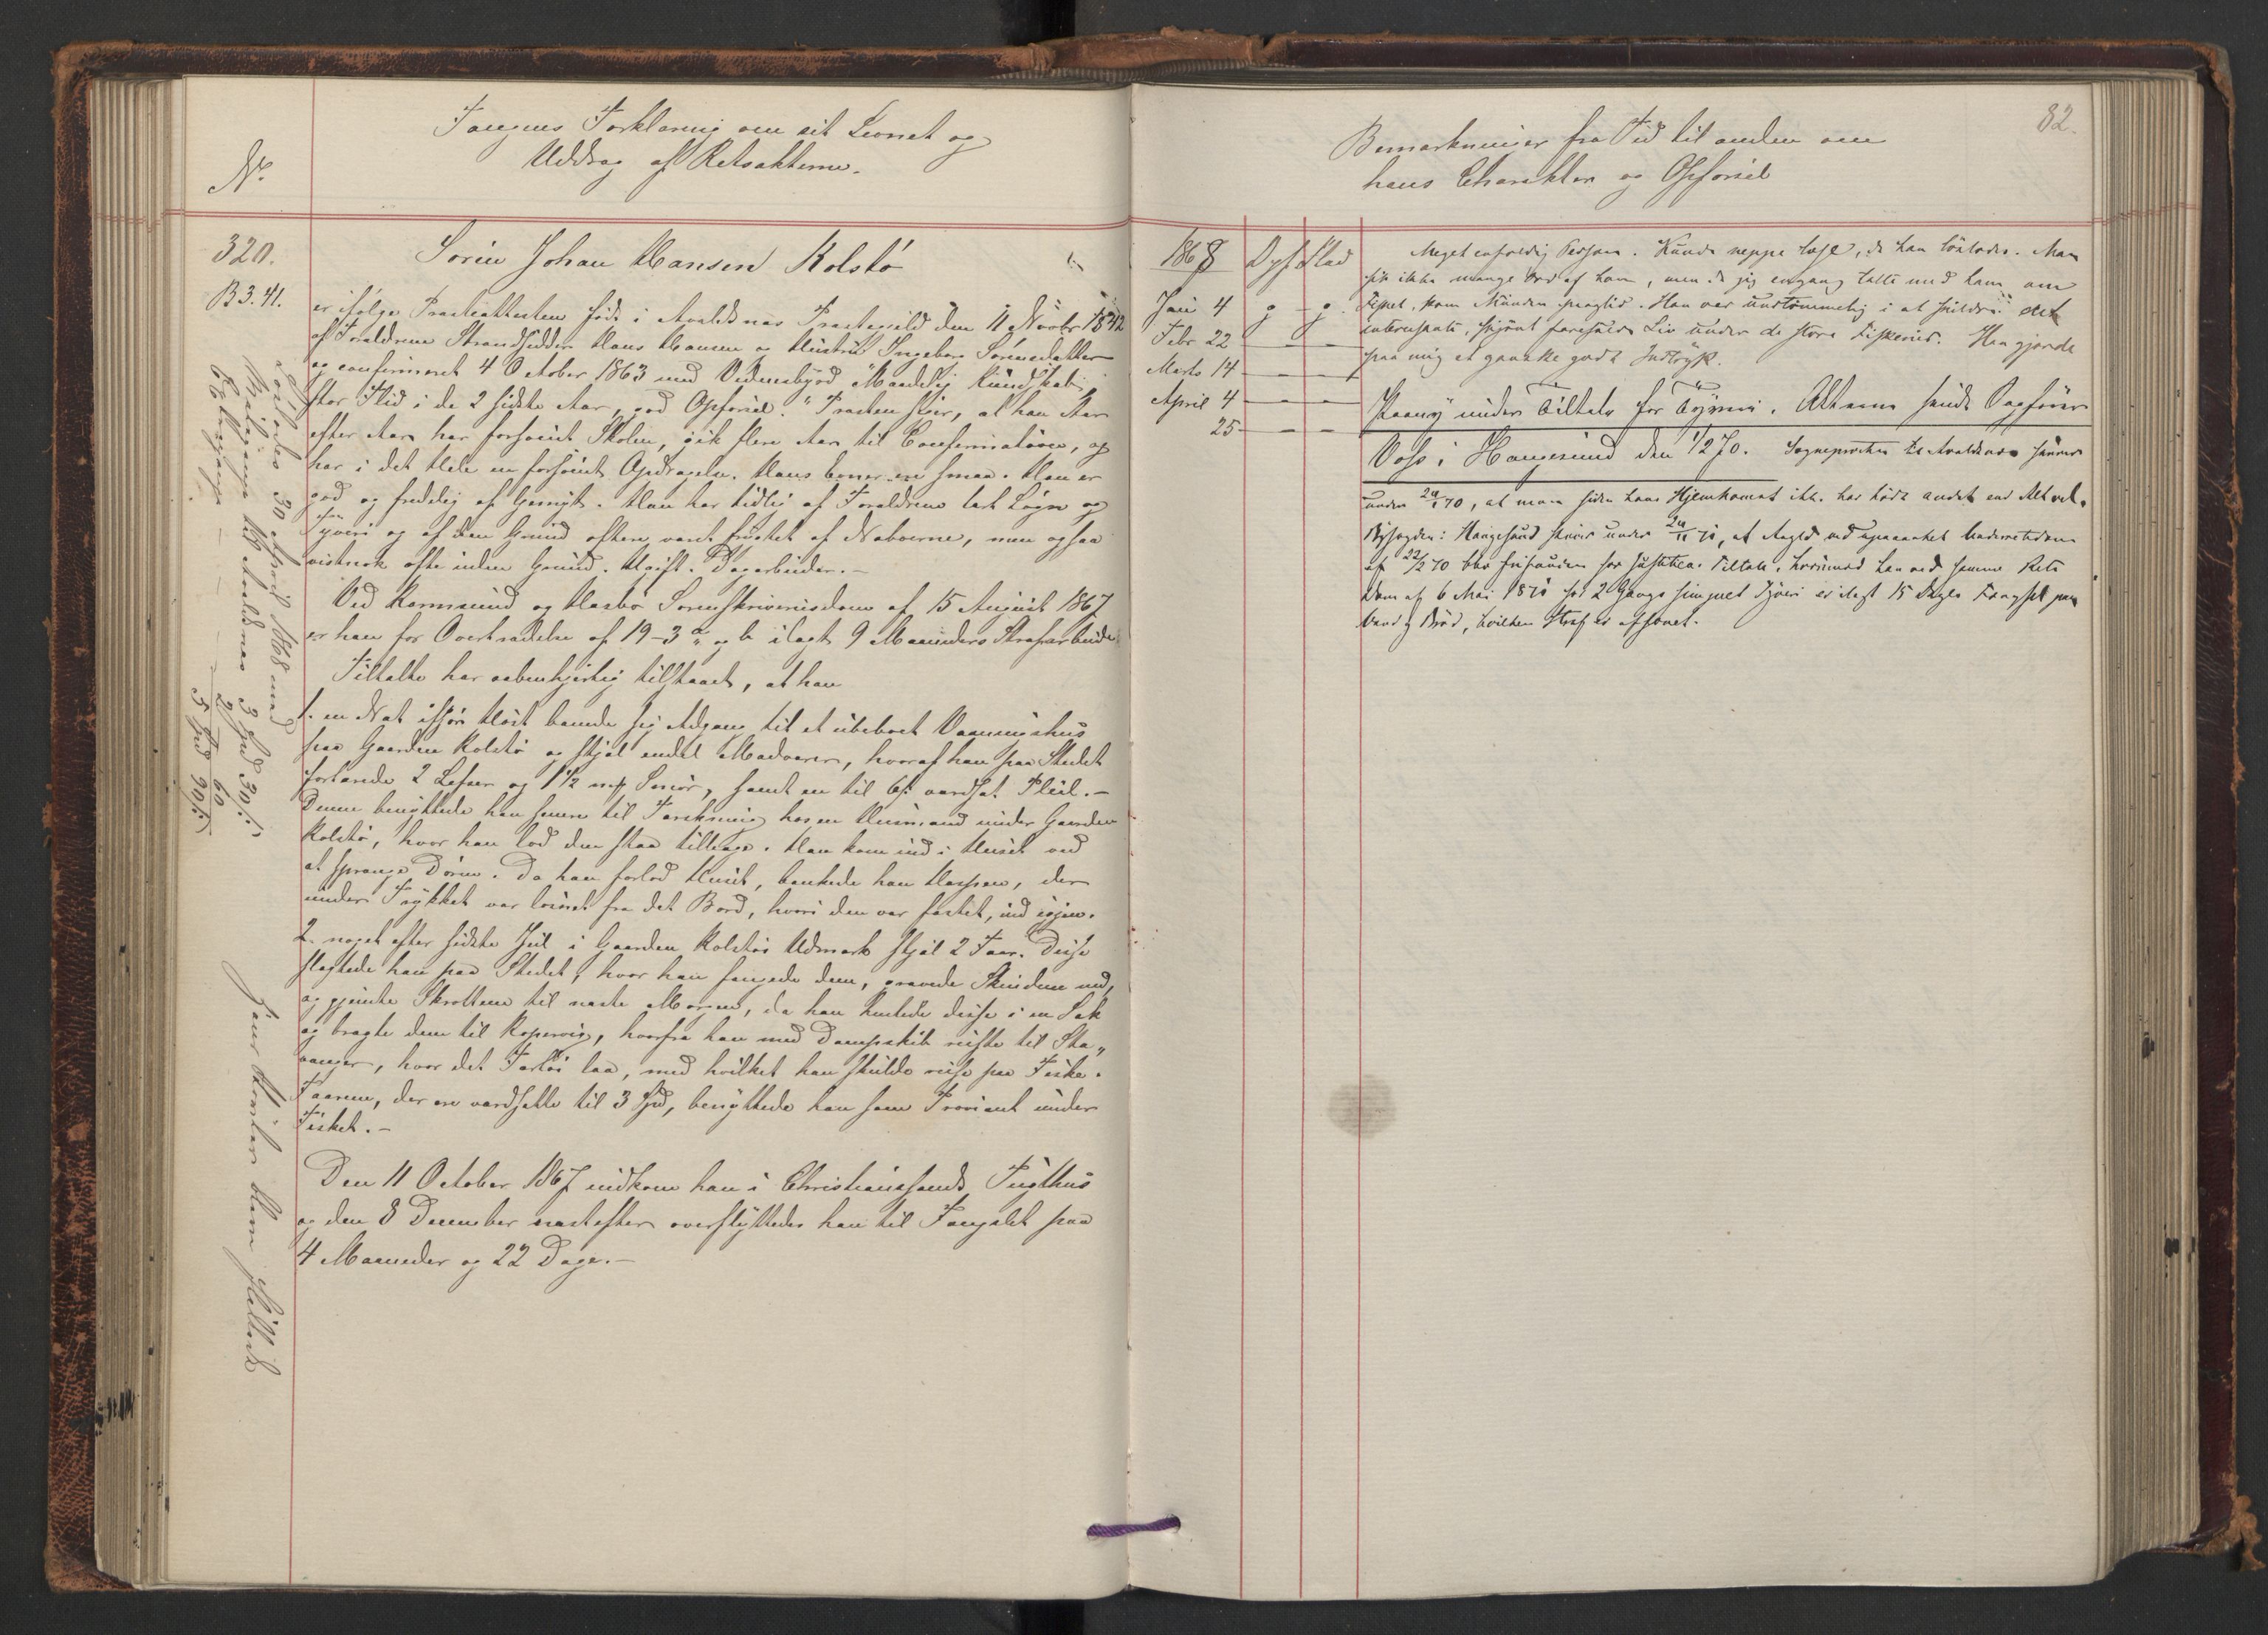 Fangens Forklaring om sit Levnet og
Uddrag af Retsakterne.
No
320.
B 3.41.
Sørin Johan Hansen Kolstø
er ifølge Præsteattesten født i Avaldsnæs Præstegjeld den 11 Novbr 1842
af Forældrene Strandsidder Hans Hansen og Hustru Ingeborg Sørensdatter
og confirmeret 4 October 1863 med Vidnesbyrd "Maadelig Kundskab,
stor Flid i de 2 sidste Aar, god Opførsel." Præsten siger, at han Aar
efter Aar har forsømt Skolen, gik flere Aar til Confirmationen, og
har i det Hele en forsømt Opdragelse. Hans Evner ere smaa. Han er
god og fredelig af Gemyt. Han har tidlig af Forældrene lært Løgn og
Tyveri og af den Grund oftere været frygtet af Naboerne, men ogsaa
vistnok ofte uden Grund. Ugift. Dagarbeider.-
Ved Karmsund og Hasbø Sorenskriveriesdom af 15 August 1867
er han for Overtrædelse af 19-3 a og b ilagt 9 Maaneders Strafarbeide
Tiltalte har aabenhjertig tilstaaet, at han
1. en Nat ifjor Høst banede sig Adgang til et ubeboet Vaaningshus
paa Gaarden Kolstø og stjal endel Madvarer, hvoraf han paa Stedet
fortærede 2 Lefser og 1½ mk Smør, samt en til 6 s. værdsat Pleil.-
Denne benyttede han senere til Tærskning hos en Huusmand under Gaarden
Kolstø, hvor han lod den staa tilbage. Han kom ind i Huset ved
at sprænge Døren. Da han forlod Huset, bankede han Haspen, der
under Trykket var løsnet fra det Bord, hvori den var fæstet, ind igjen.
2. noget efter sidste Jul i Gaarden Kolstøs Udmark stjal 2 Faar. Disse
slagtede han paa Stedet, hvor han fangede dem, gravede Skindene ned,
og gjemte Skrottene til næste Morgen, da han hentede disse i en Sæk
og bragte dem til Kopervig, hvorfra han med Dampskib reiste til Sta„
vanger, hvor det Fartøi laa, med hvilket han skulde reise paa Fiske.
Faarene, der ere værdsatte til 3 Spd, benyttede han som Proviant under
Fisket.-
Den 11 October 1867 indkom han i Christianssands Tugthus
og den 8 December næstefter overflyttedes han til Fængslet paa
4 Maaneder og 22 Dage.-
Løslades 30 April 1868 med
Reisepenge til Avaldsnæs 3 Spd 30 s.
2 " 60
5 Spd 90 s.
82.
Bemærkninger fra Tid til anden om
hans Charakter og Opførsel
1868
Opf
Flid
Jan 4 g - g.
Febr 22 - -
Marts 14 - -
April 4 - -
25 - -
Meget enfoldig Person. Kunde neppe læse, da han løslodes. Man
fik ikke mange Ord af ham, men da jeg engang talte med ham om
Fisket, kom Munden paaglid. Han var uudtømmelig i at skildre det
interessante, skjønt farefulde Liv under de store Fiskerier. Han gjorde
paa mig et ganske godt Indtryk.
Paany under Tiltale for Tyveri. Akterne sendt Byfogden
Voss i Haugesund den 1/2 70. Sognepræsten til Avaldsnæs skriver
under 24/1 70, at man siden hans Hjemkomst ikke har hørt andet end Alt vel.
Byfogden i Haugesund skriver under 24/11 71, at
af 22/2 70 blev for Justitiens Tiltale, hvorimod han ved samme Rets
Dom af 6 Mai 1870 for 2 Gange simpelt Tyveri er ilagt 15 Dages Fængsel paa
Vand og Brød, hvilken Straf er afsonet.